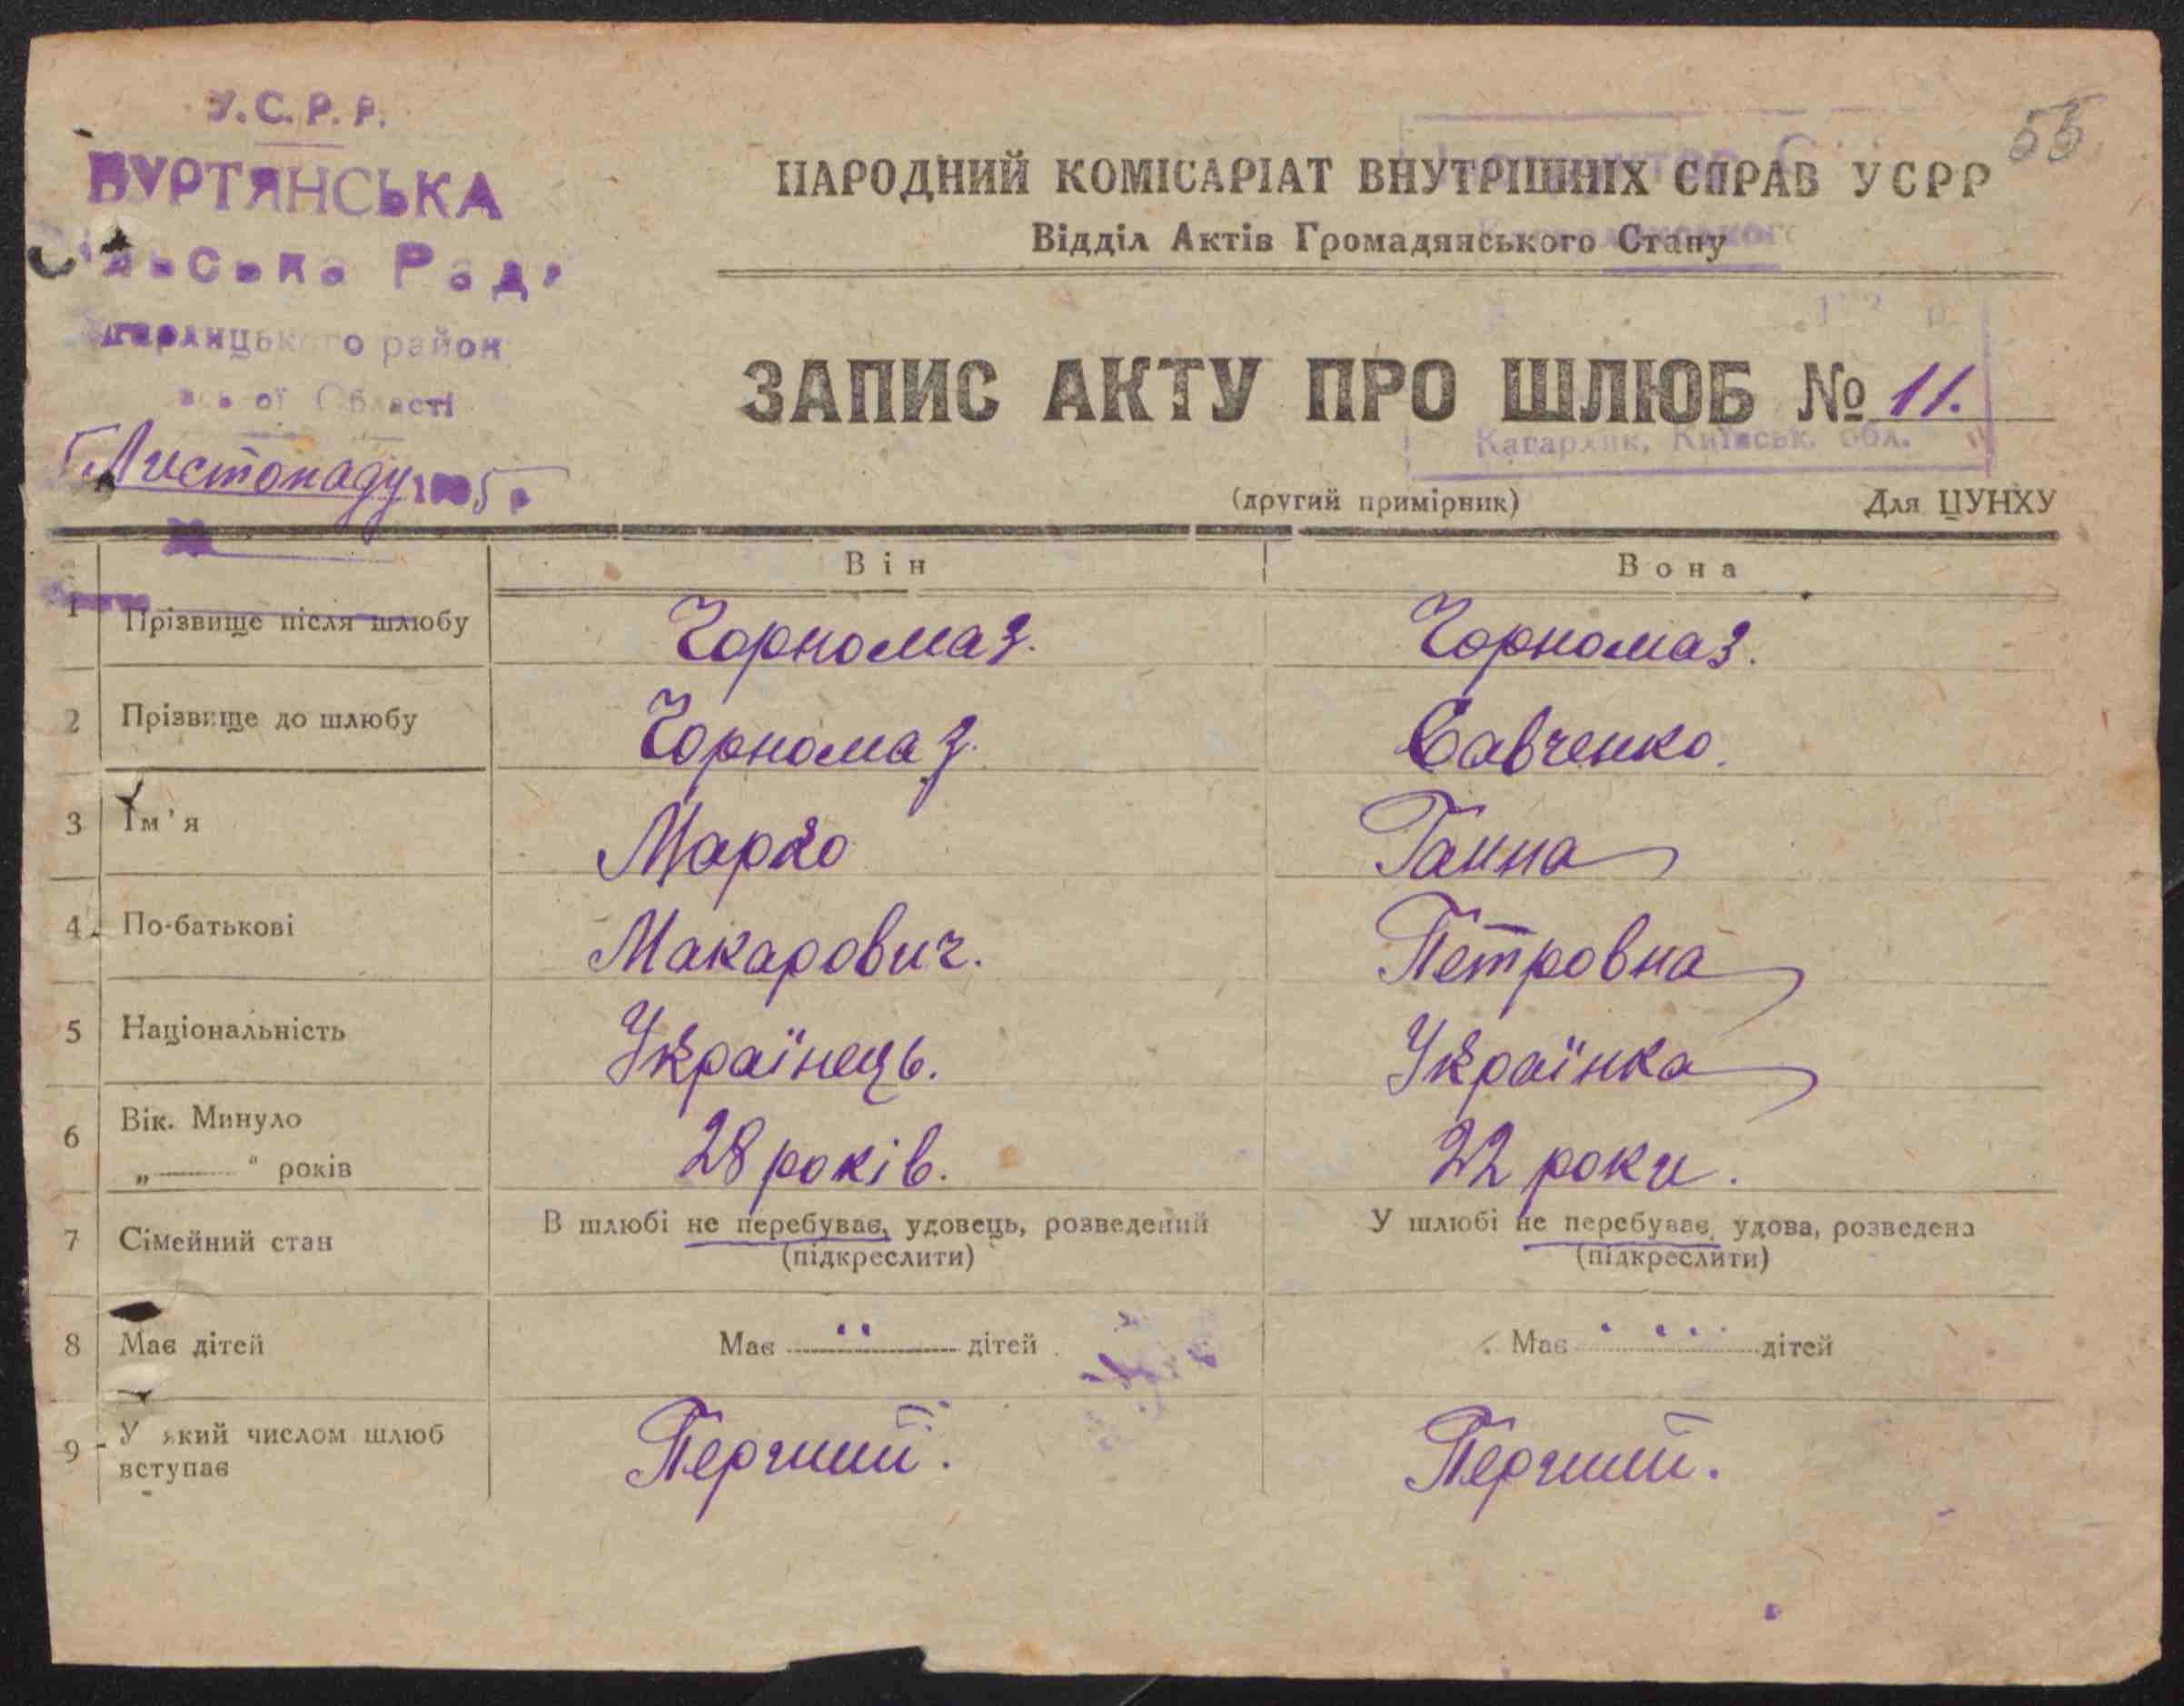 У.С.Р.Р.
БУРТЯНСЬКА
Рад
района
Області
Листопаду 5 р
55
НАРОДНИЙ КОМІСАРІАТ ВНУТРІШНІХ СПРАВ УСРР
Відділ Актів Громадянського Стану
ЗАПИС АКТУ ПРО ШЛЮБ № 11.
Кагарлик, Київськ. обл.
(другий примірник) Для ЦУНХУ
Він Вона
1 Прізвище після шлюбу Чорномаз. Чорномаз.
2 Прізвище до шлюбу Чорномаз. Савченко.
3 Ім'я Марко Ганна
4 По-батькові Макарович. Петровна
5 Національність Українець. Українка
6 Вік. Минуло
„ “ років 28 років. 22 роки.
7 Сімейний стан В шлюбі не перебуває, удовець, розведений У шлюбі не перебуває, удова, розведена
(підкреслити) (підкреслити)
8 Має дітей Має дітей Має дітей
9 У який числом шлюб
вступає Перший. Перший.